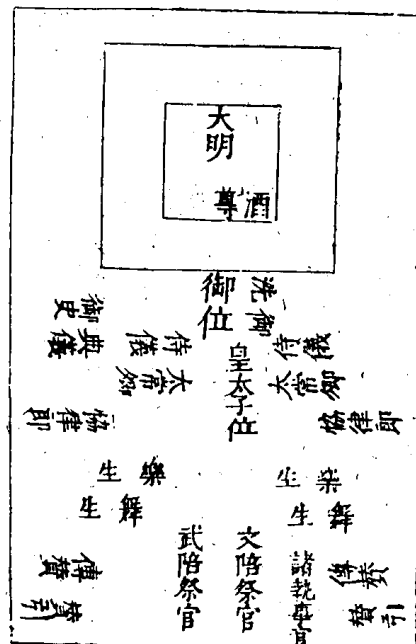 大明
酒尊
御洗
御位
御史
典儀
侍儀
侍儀
皇太子位
太常卿
太常卿
協律郎
協律郎
樂生
樂生
舞生
舞生
文陪祭官
武陪祭官
諸執事官
傳贊
傳贊
贊引
贊引